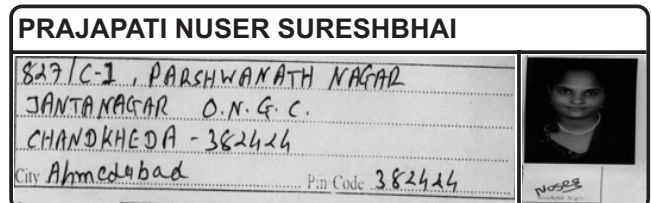 PRAJAPATI NUSER SURESHBHAI
827/C-1, PARSHWANATH NAGAR
JANTANAGAR O.N.G.C.
CHANDKHEDA - 382424
City Ahmedabad Pin Code 382424
NUSER